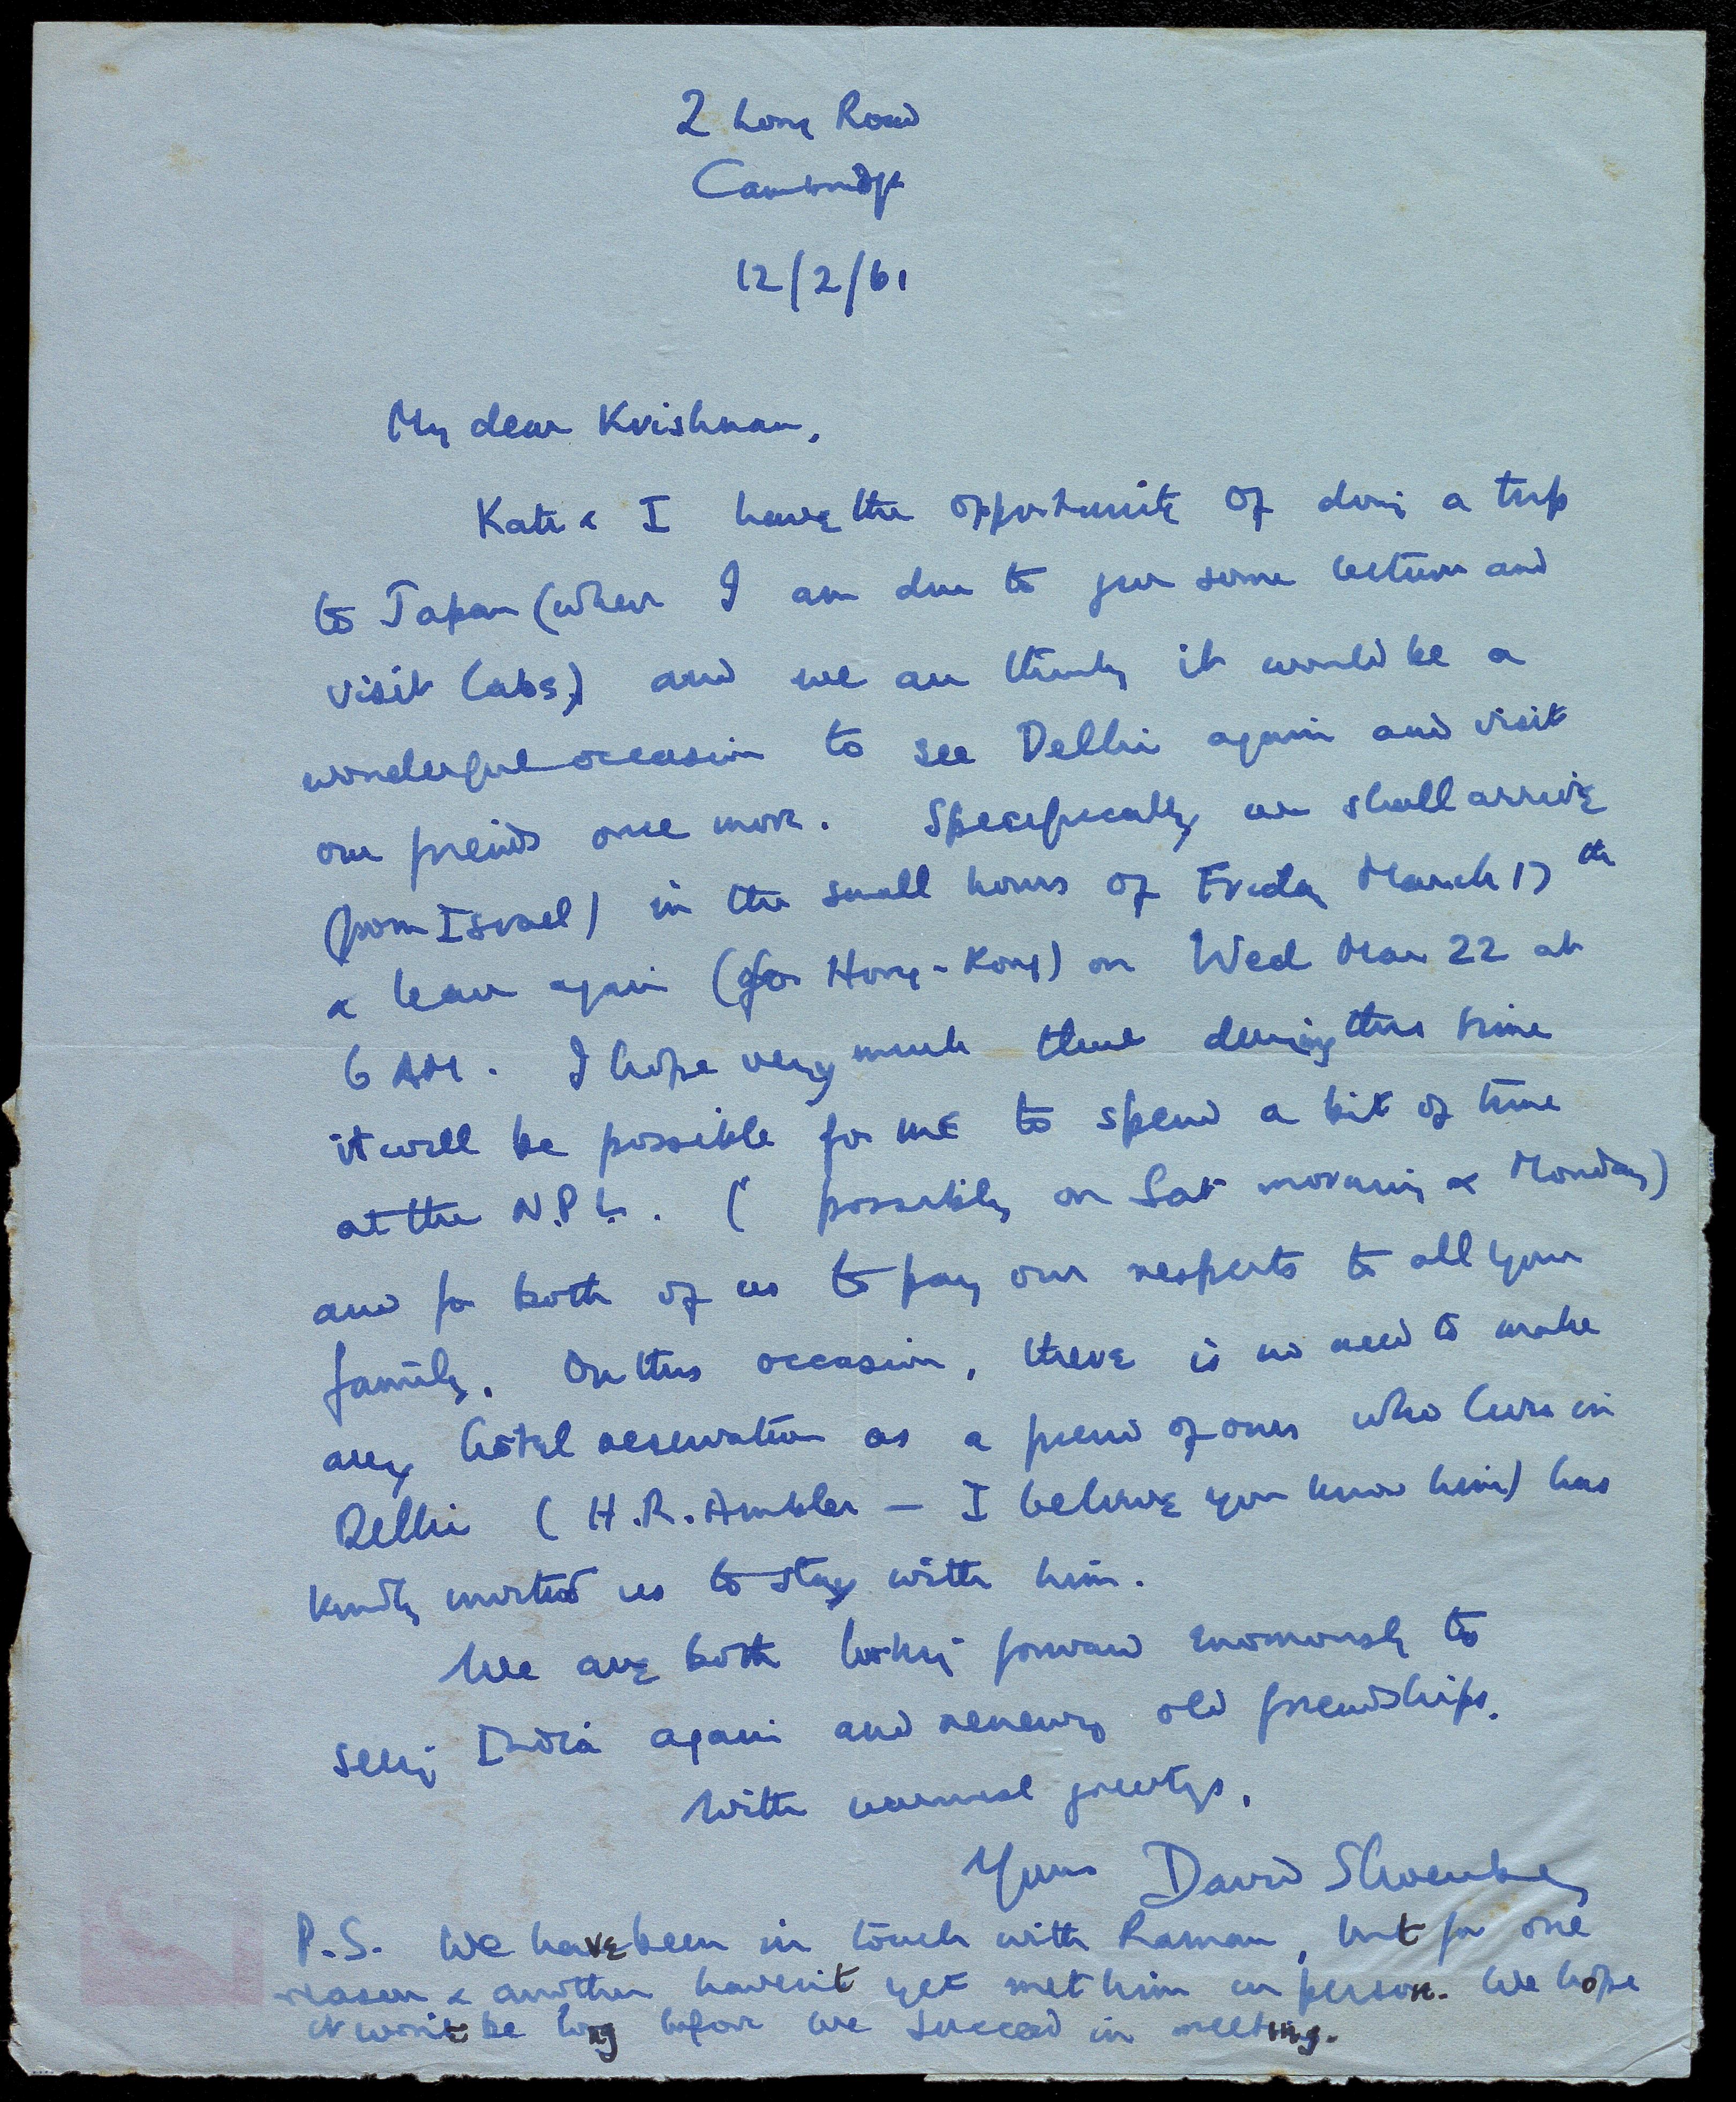 2 Long Road
Cambridge
12/2/61
My dear Krishnan,
Kate & I have the opportunity of doing a trip
to Japan (where I am due to give some lectures and
visit labs) and we are thinking it would be a
wonderful occasion to see Delhi again and visit
our friends once more. Specifically we shall arrive
(from Israel) in the small hours of Friday March 17th
& leave again (for Hong-Kong) on Wed Mar 22 at
6 AM. I hope very much that during this time
it will be possible for me to spend a bit of time
at the N.P.L. (possibly on Sat morning & Monday)
and for both of us to pay our respects to all your
family. On this occasion, there is no need to make
any hotel reservation as a friend of ours who lives in
Delhi (H.R. Ambler — I believe you know him) has
kindly invited us to stay with him.
We are both looking forward enormously to
seeing India again and renewing old friendships.
With warmest greetings,
Yours David Shoenberg
P.S. We have been in touch with Raman, but for one
reason & another haven't yet met him in person. We hope
it won't be long before we succeed in meeting.